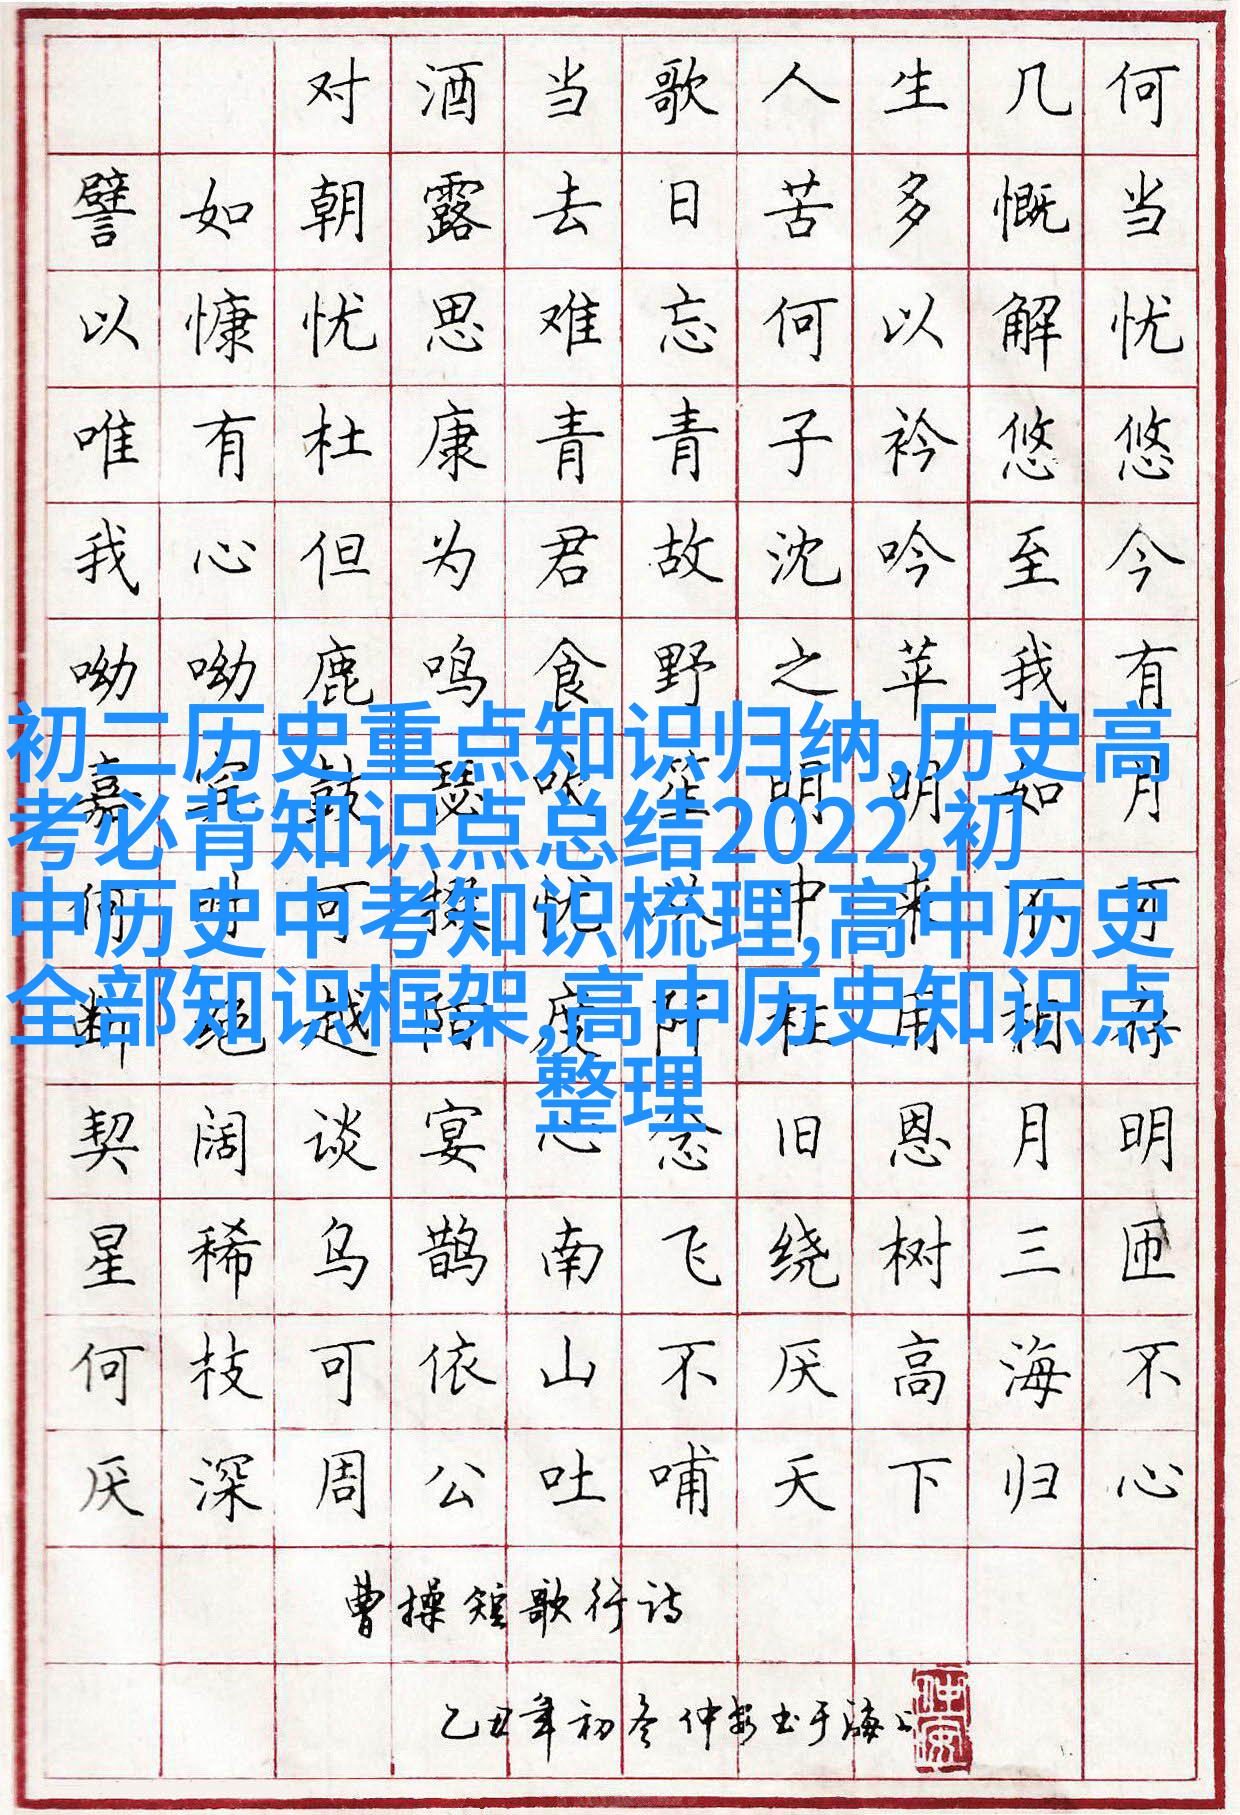 对酒当歌人生几何
譬如朝露去日苦多慨当
以慷忧思难忘何以解忧
唯有杜康青青子衿悠悠
我心但为君故沈吟至今
呦呦鹿鸣食野之苹我有
嘉宾鼓瑟吹笙明明如月
何时可掇忧从中来不可
断绝越陌度阡枉用相存
契阔谈宴心念旧恩月明
星稀乌鹊南飞绕树三匝
何枝可依山不厌高海不
厌深周公吐哺天下归心
曹操短歌行诗
乙丑年初冬仲安书于海上
仲安
初二历史重点知识归纳,历史高
考必背知识点总结2022,初
中历史中考知识梳理,高中历史
全部知识框架,高中历史知识点
整理